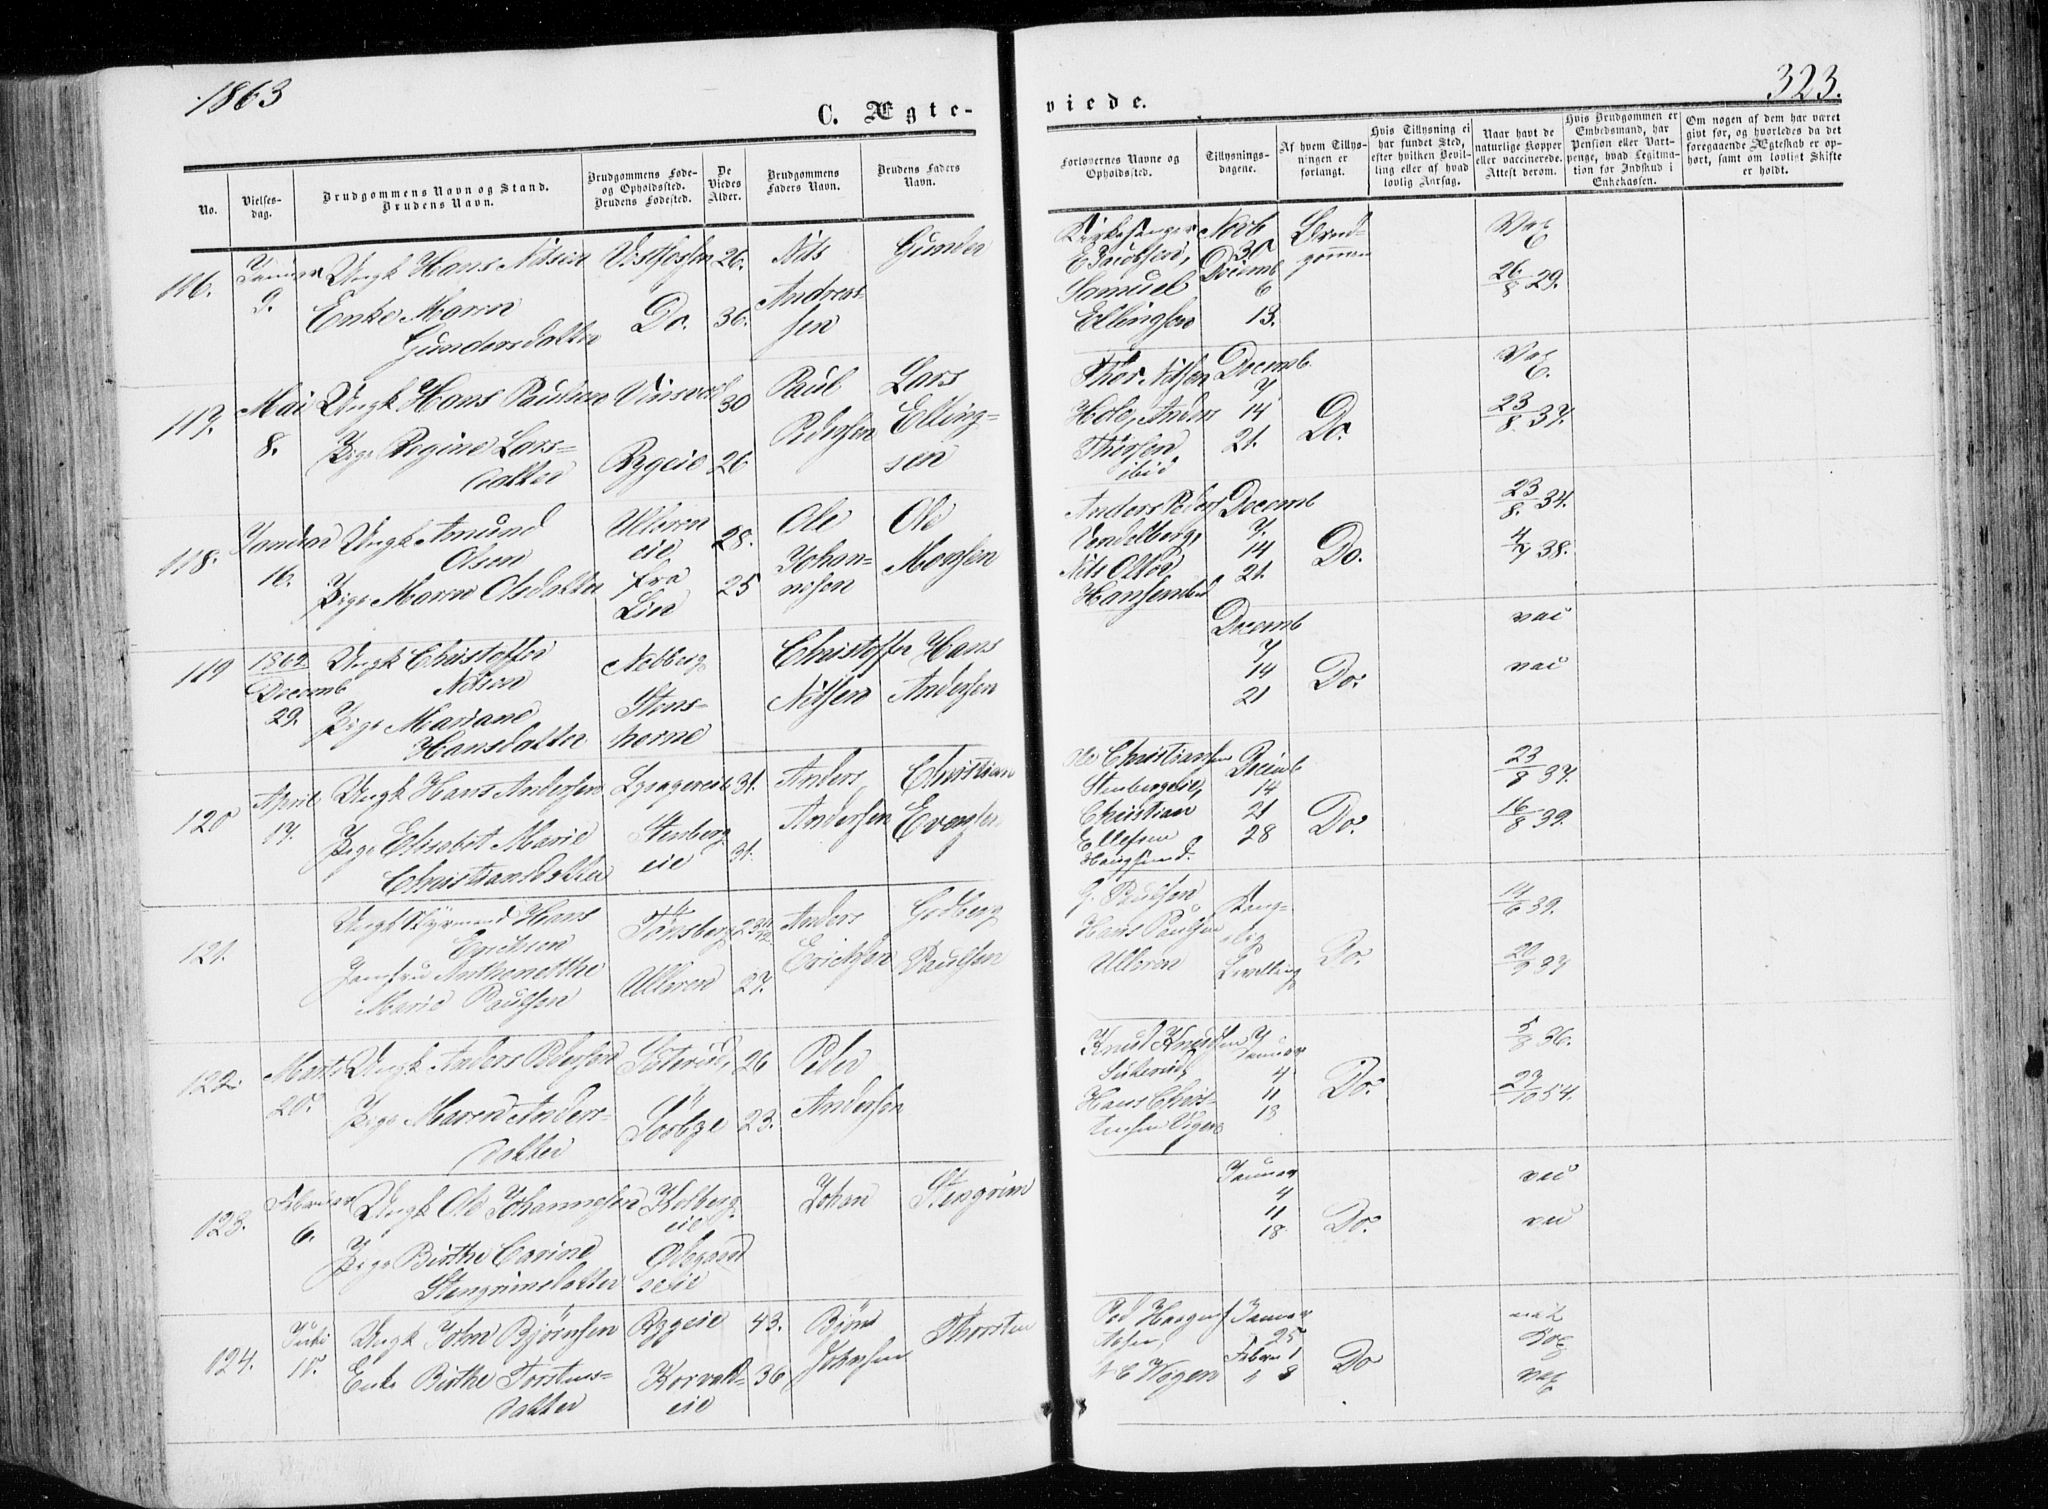 1863
323.
C. Ægte-
viede.
No.
Vielses-
dag.
Brudgommens Navn og Stand.
Brudens Navn.
Brudgommens Føde-
og Opholdssted.
Brudens Fødested.
De
Viedes
Alder.
Brudgommens
Faders Navn.
Brudens Faders
Navn.
Forlovernes Navne og
Opholdssted.
Tillysnings-
dagene.
Af hvem Tillys-
ningen er
forlangt.
Hvis Tillysning ei
har fundet Sted,
efter hvilken Bevil-
ling eller af hvad
lovlig Aarsag.
Naar havt de
naturlige Kopper
eller vaccinerede.
Attest derom.
Hvis Brudgommen er
Embedsmand, har
Pension eller Vart-
penge, hvad Legitima-
tion for Indskud i
Enkekassen.
Om nogen af dem har været
givt før, og hvorledes da det
foregaaende Ægteskab er op-
hørt, samt om lovligt Skifte
er holdt.
116.
Januar
9.
Ungk Hans Nilsen
Enke Maren
Gundersdatter
Vestfossen
Do.
26.
36.
Nils
Andreas
sen
Gunder
Kirkesanger
E. Jacobsen,
Samuel
Ellingsen
Novb
30
Decemb
6
13.
Brud-
gommen
Vac
26/8 29.
117.
Mai
8.
Ungk Hans Paulsen
Pige Regine Lars-
datter
Rygeie
30
26
Paul
Pedersen
Lars
Elling-
sen
Thor Nilsen
Hole, Anders
Thorsen
ibid
Decemb
7
14
21.
Do.
Vac
23/8 37.
118.
Januar
16.
Ungk Amund
Olsen
Pige Maren Olsdatter
Ulleren
eie
fra
Lier
28.
25
Ole
Johan-
nesen
Ole
Monsen
Anders Peders
Nils Olsen
Decemb
7.
14
21.
Do.
23/8 34.
4/7 38.
119
1862
Decemb
29.
Ungk Christoffer
Nilsen
Pige Mariane
Hansdatter
Nedberg
Stens-
horne
Christoffer
Nilsen
Hans
Andersen
Decemb
7
14
21
Do.
vac
vac
120
April
17.
Ungk Hans Andersen
Pige Elisabet Marie
Christiansdatter
Stenberg
eie
31.
31.
Anders
Andersen
Christian
Evensen
Ole Christiansen
Stenbergeie,
Christian
Ellefsen
Haugsund.
Decemb
14
21
28
Do.
23/8 37.
16/8 39.
121.
Ungk Styrmand Hans
Erichsen
Jomfru Anthonethe
Marie Paulsen
Tönsberg
Ulleren
27.
Anders
Ericksen
Gudberg
Paulsen
G. Paulsen
Hans Paulsen
Ulleren
Kong-
elig
Bevilling
Do.
122.
Marts
20.
Ungk Anders Pedersen
Pige Maren Anders-
datter
Söterud,
Sörbye
26
23.
Peder
Andersen
Knud Knudsen
Söterud,
Hans Chris-
tensen Vigen
Januar
4
11
18
Do.
5/8 36.
27/10 54.
123.
Februar
6.
Ungk Ole Johannesen
Pige Birthe Carine
Stengrimsdatter
Kolberg
eie
Ödegaard
seie
Johan
Stengrim
Januar
4
11
18
Do.
vac
vac
124.
Juli
11.
Ungk John Bjørnsen
Enke Birthe Torstens-
datter
Rygeie
Korvald-
eie
43.
36
Bjørn
Johnsen
Thorsten
Januar
25
Febru 1
" 8
Do
vac